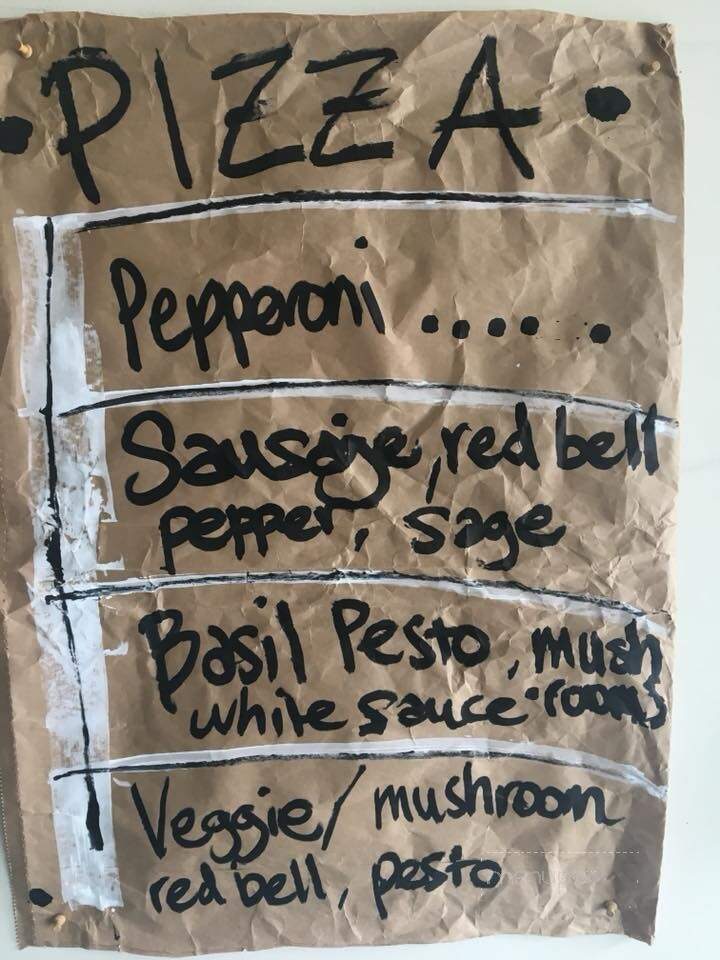 • PIZZA •
Pepperoni . . . . . .
Sausage, red bell
pepper, sage
Basil Pesto, mush
white sauce •rooms
Veggie/ mushroom
red bell, pesto